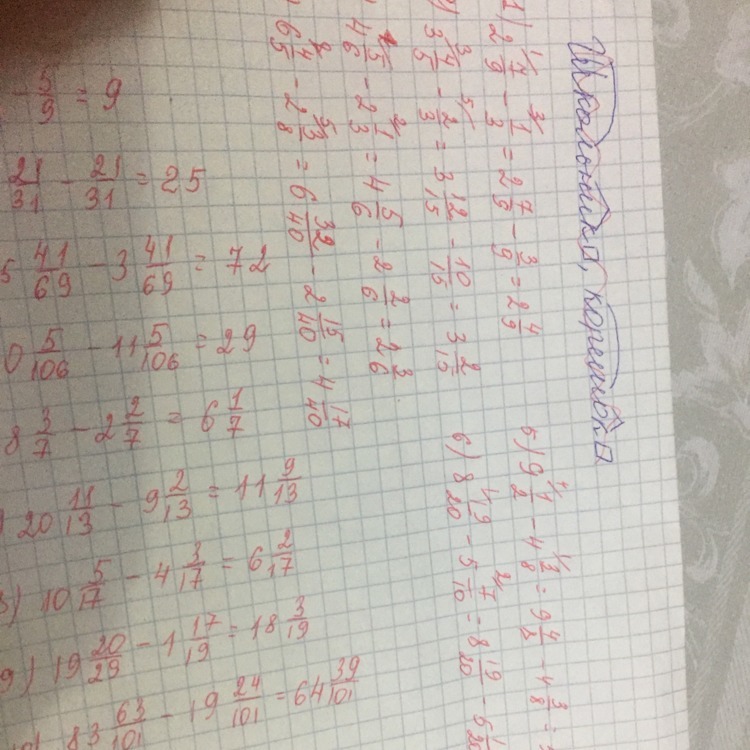 Школьника, корешовка
1) 2 7/9 - 1/3 = 2 7/9 - 3/9 = 2 4/9
3 4/5 - 2/3 = 3 12/15 - 10/15 = 3 2/15
4 5/6 - 2 1/3 = 4 5/6 - 2 2/6 = 2 3/6
6 4/5 - 2 3/8 = 6 32/40 - 2 15/40 = 4 17/40
5) 9 1/2 - 4 3/8 = 9 4/8 - 4 3/8 =
6) 8 19/20 - 5 7/10 = 8 19/20 - 5
- 5/9 = 9
21/31 - 21/31 = 25
5 41/69 - 3 41/69 = 72
0 5/106 - 11 5/106 = 29
8 3/7 - 2 2/7 = 6 1/7
) 20 11/13 - 9 2/13 = 11 9/13
8) 10 5/17 - 4 3/17 = 6 2/17
9) 19 20/29 - 1 17/19 = 18 3/19
83 63/101 - 19 24/101 = 64 39/101